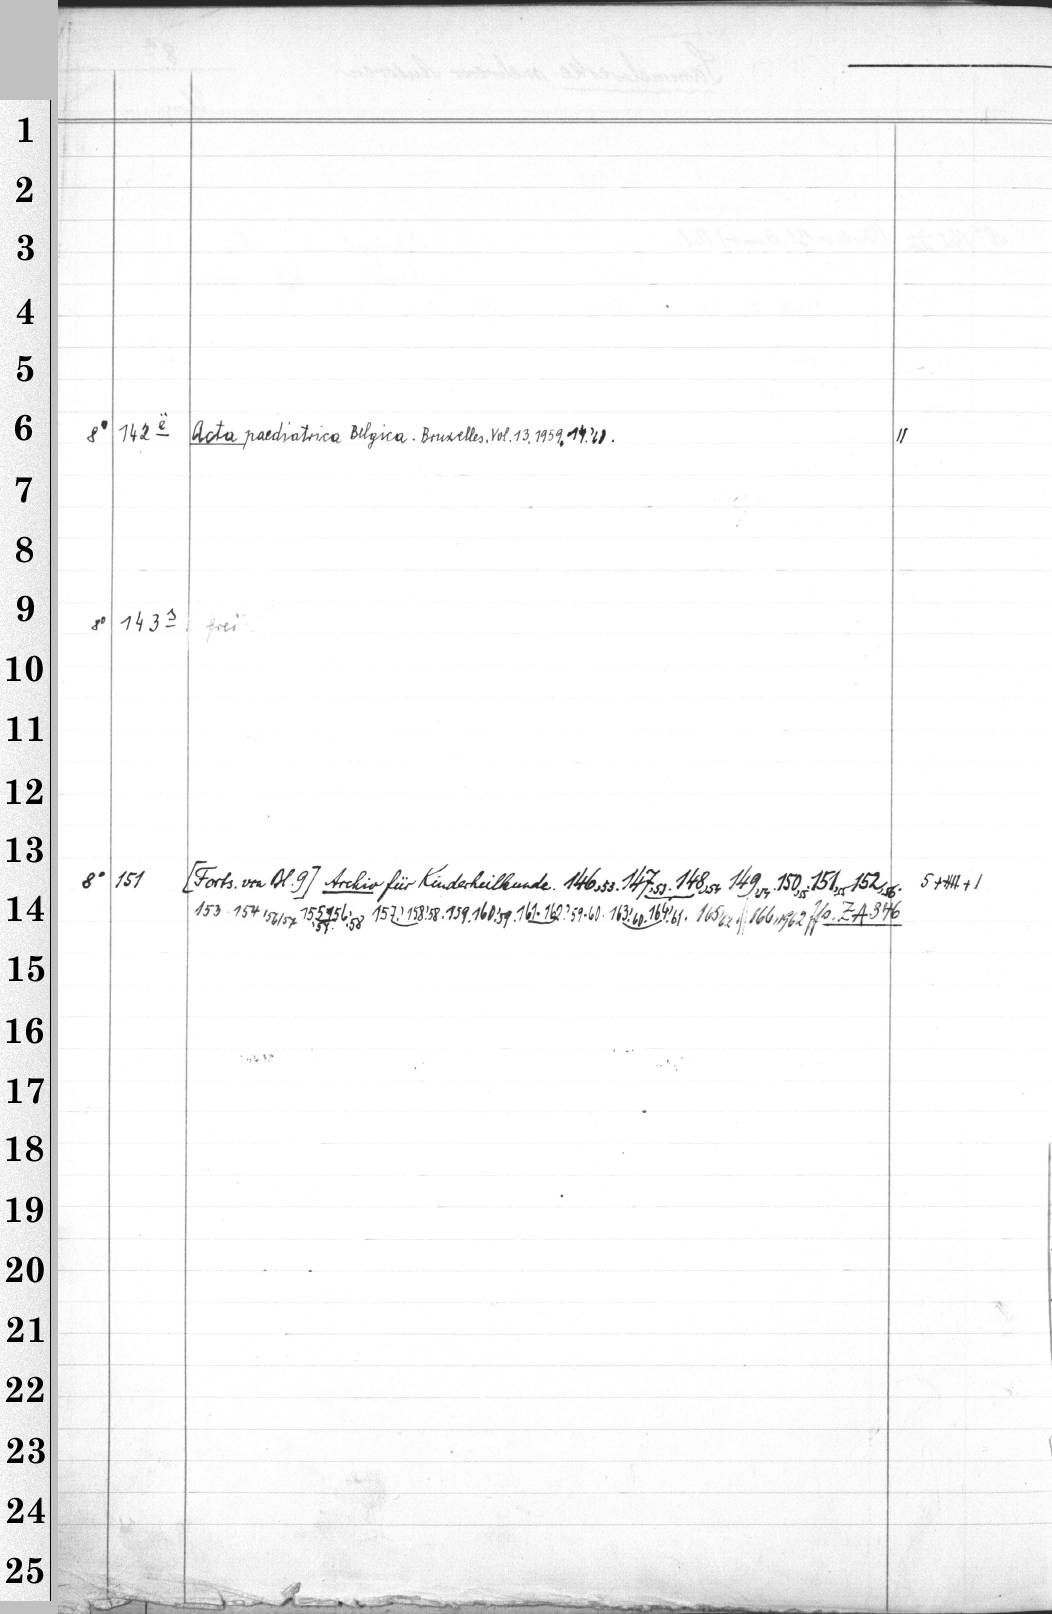 1
2
3
4
5
6
8° 142 ë Acta paediatrica Belgica. Bruxelles. Vol. 13. 1959. 14.'60. II
7
8
9
8° 143 frei
10
11
12
13
8° 151 [Forts. von Bl. 9] Archiv für Kinderheilkunde. 146,'53. 147,'53. 148,'54 149,'54. 150,'55. 151,'55 152,'56. 5 + IIII + I
14
153. 154 '56/57 155 156,'58 157.' 158'58. 159. 160.'59. 161. 162.'59-60. 163,'60. 164,'61. 165,'62 166,1962 ff s. ZA 346
15
16
17
18
19
20
21
22
23
24
25